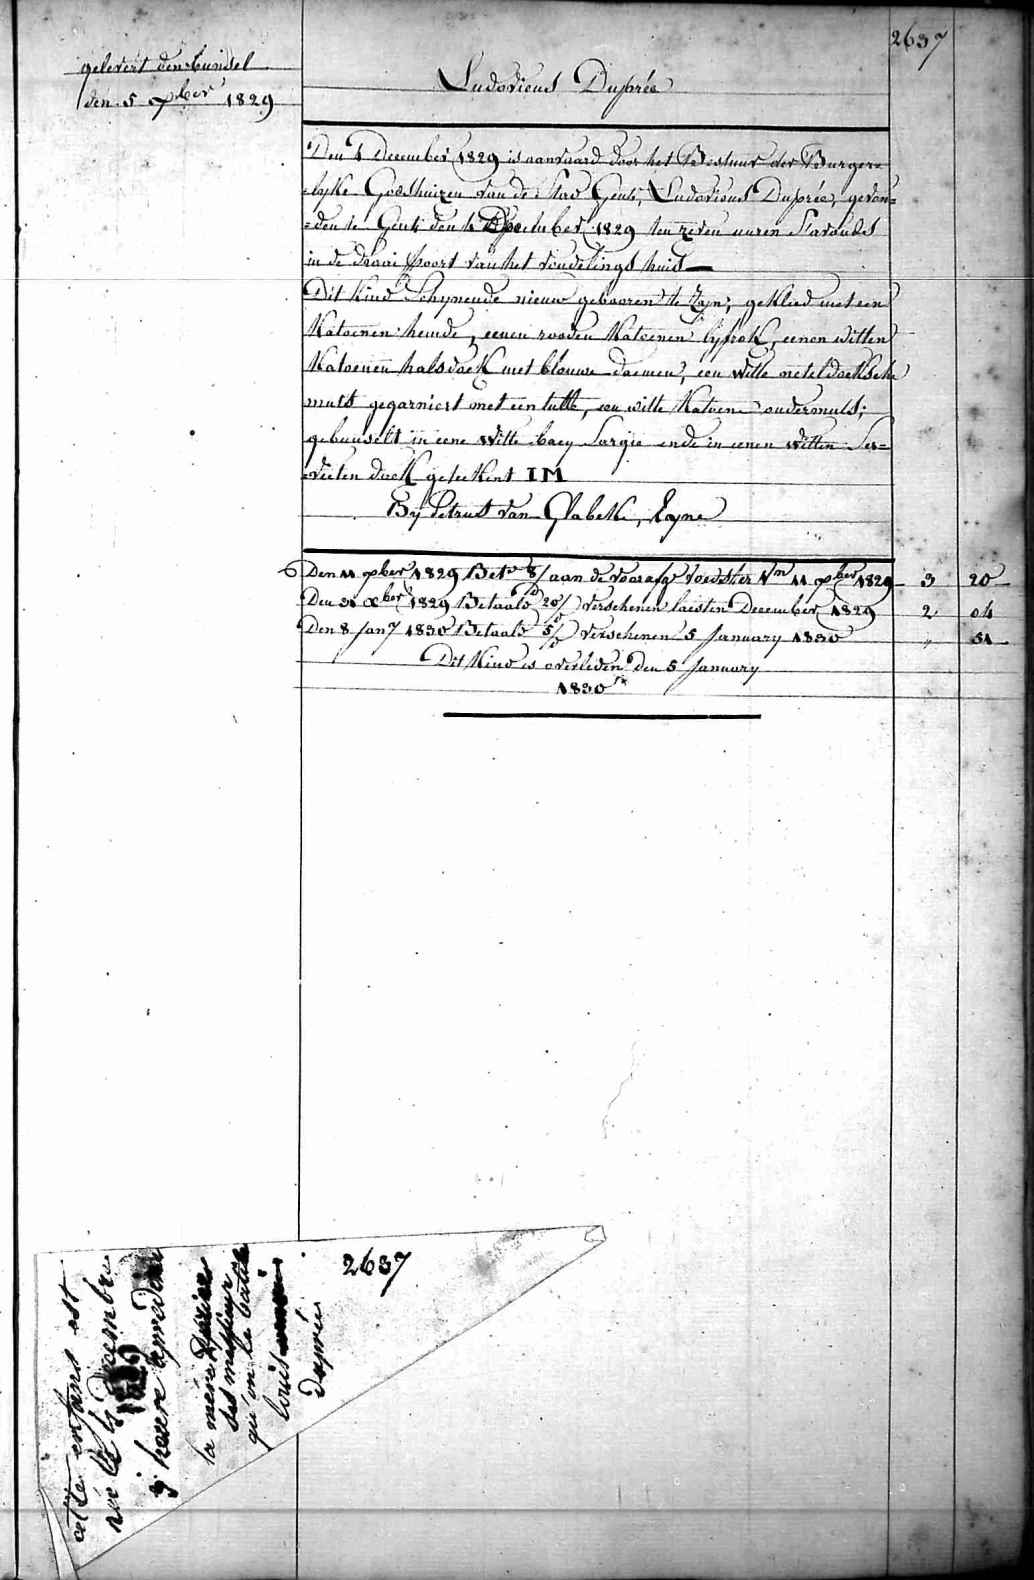 2637
gelevert den bundel
den 5 xber 1829
Ludovicus Duprée
Den 4 December 1829 is aanvaard door het Bestuur der Burger=
=lyke Godshuizen van de Stad Gent, Ludovicus Duprée, gevon=
=den te Gent den 4 December 1829 ten zeven uuren s'avonds
in de draai poort van het vondelings huis
Dit kind schynende nieuw gebooren te zyn, gekleed met een
katoenen hemde, eenen rooden katoenen lyfrok, eenen witten
katoenen halsdoek met blouwe, een witte neteldoeksche
muts gegarniert met een tulle, een witte katoene ondermuts;
gebunselt in eene witte baey sargie ende in eenen witten Ser=
=vieten doek geteekent IM
By Petrus van Glabeke, Eyne
Den 11 xber 1829 Bet. 8/ aan de voorafg voedster Vn 11 xber 1829 3 20
Den 31 xber 1829 Betaald 20/ verschenen laesten December 1829 2 04
Den 8 Jany 1830 Betaald 5/ verschenen 5 January 1830 " 51
Dit Kind is overleden den 5 January
1830
2637
cette enfans est
née le 4 Decembre
1829
3 heure apredine
la mére desire
des messieur
qu'on le batise
louis
duprée